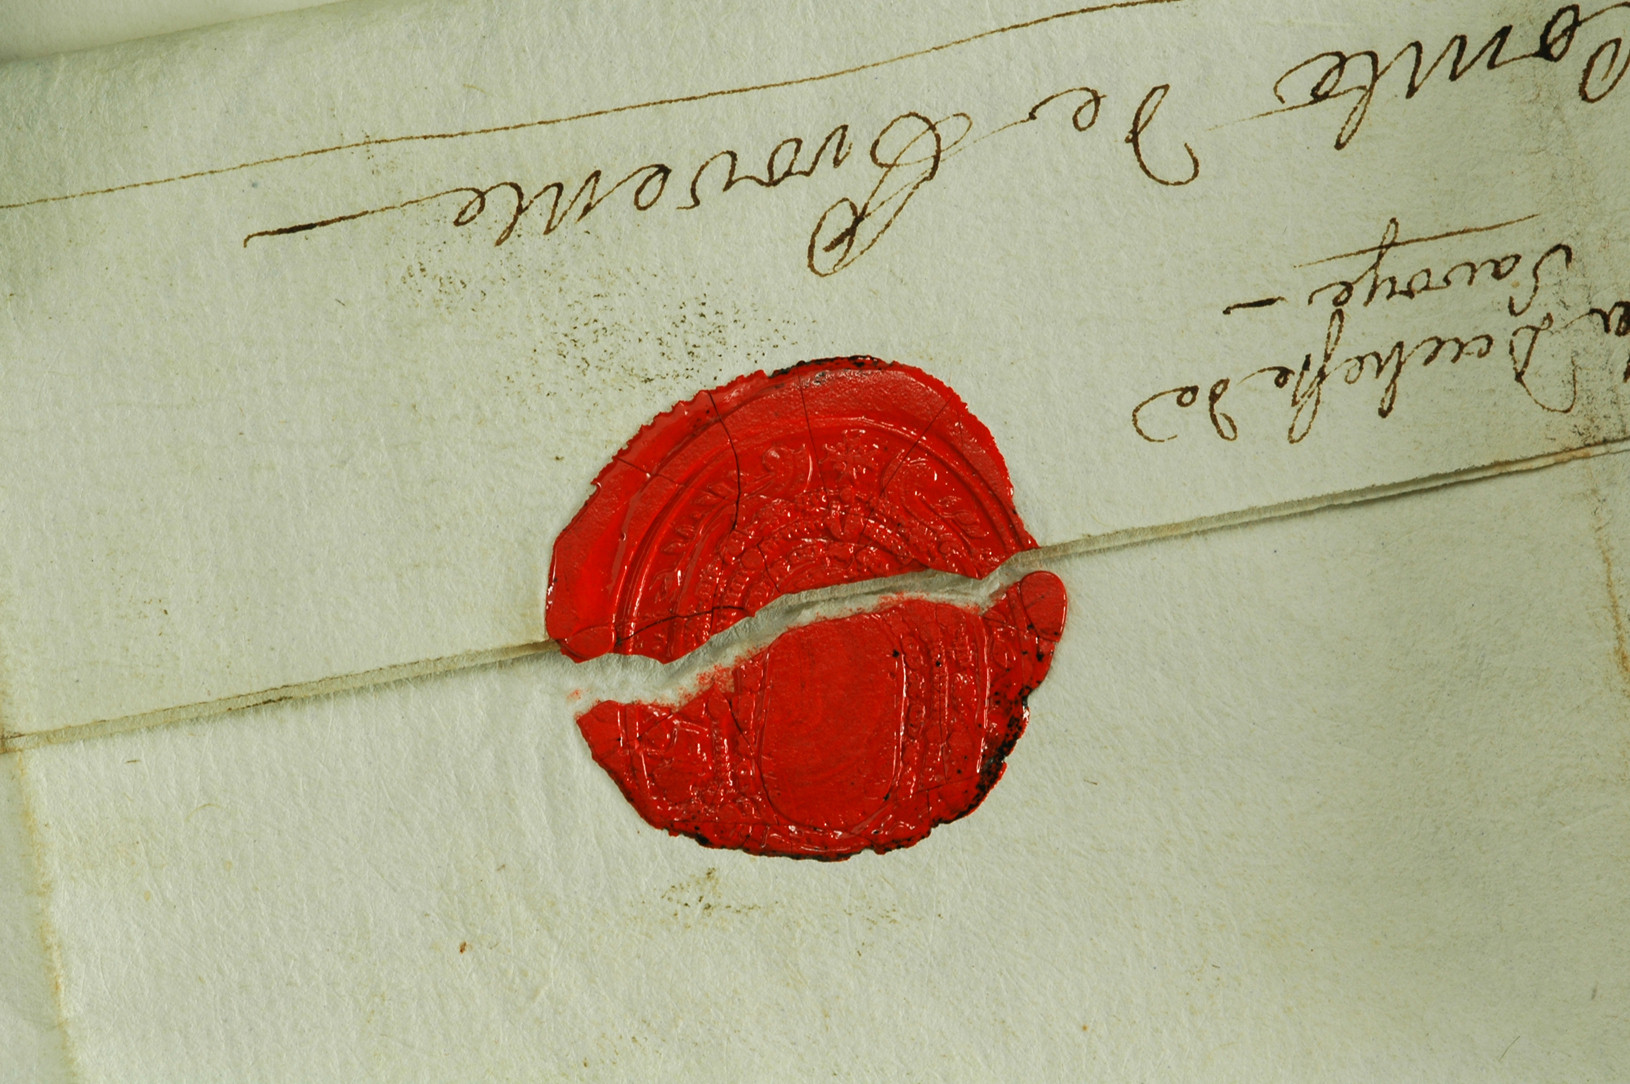 Duchesse de
Savoye –
Comte De Provence —